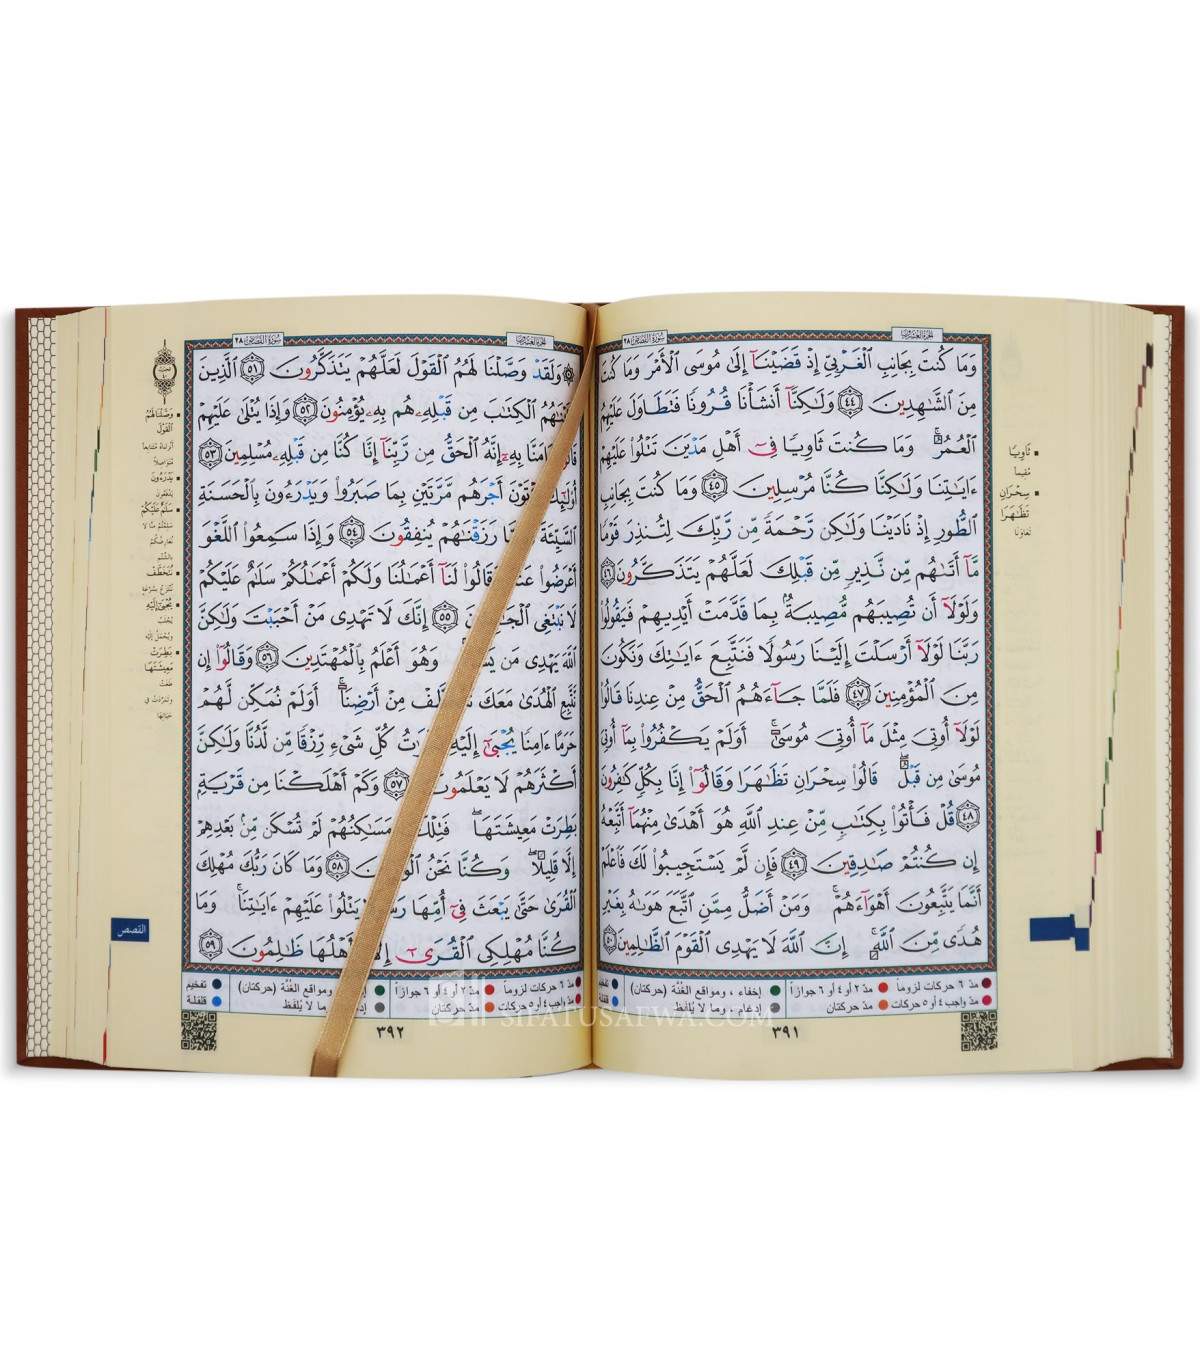 سورة القصص ٢٨
وَمَا كُنتَ بِجَانِبِ ٱلْغَرْبِيِّ إِذْ قَضَيْنَآ إِلَىٰ مُوسَى ٱلْأَمْرَ وَمَا كُنتَ
مِنَ ٱلشَّٰهِدِينَ ٤٤ وَلَٰكِنَّآ أَنشَأْنَا قُرُونًا فَتَطَاوَلَ عَلَيْهِمُ
ٱلْعُمُرُ ۚ وَمَا كُنتَ ثَاوِيًا فِىٓ أَهْلِ مَدْيَنَ تَتْلُوا۟ عَلَيْهِمْ
ءَايَٰتِنَا وَلَٰكِنَّا كُنَّا مُرْسِلِينَ ٤٥ وَمَا كُنتَ بِجَانِبِ
ٱلطُّورِ إِذْ نَادَيْنَا وَلَٰكِن رَّحْمَةً مِّن رَّبِّكَ لِتُنذِرَ قَوْمًا
مَّآ أَتَىٰهُم مِّن نَّذِيرٍ مِّن قَبْلِكَ لَعَلَّهُمْ يَتَذَكَّرُونَ ٤٦
وَلَوْلَآ أَن تُصِيبَهُم مُّصِيبَةٌۢ بِمَا قَدَّمَتْ أَيْدِيهِمْ فَيَقُولُوا۟
رَبَّنَا لَوْلَآ أَرْسَلْتَ إِلَيْنَا رَسُولًا فَنَتَّبِعَ ءَايَٰتِكَ وَنَكُونَ
مِنَ ٱلْمُؤْمِنِينَ ٤٧ فَلَمَّا جَآءَهُمُ ٱلْحَقُّ مِنْ عِندِنَا قَالُوا۟
لَوْلَآ أُوتِىَ مِثْلَ مَآ أُوتِىَ مُوسَىٰٓ ۚ أَوَلَمْ يَكْفُرُوا۟ بِمَآ أُوتِىَ
مُوسَىٰ مِن قَبْلُ ۖ قَالُوا۟ سِحْرَانِ تَظَٰهَرَا وَقَالُوٓا۟ إِنَّا بِكُلٍّ كَٰفِرُونَ
٤٨ قُلْ فَأْتُوا۟ بِكِتَٰبٍ مِّنْ عِندِ ٱللَّهِ هُوَ أَهْدَىٰ مِنْهُمَآ أَتَّبِعْهُ
إِن كُنتُمْ صَٰدِقِينَ ٤٩ فَإِن لَّمْ يَسْتَجِيبُوا۟ لَكَ فَٱعْلَمْ
أَنَّمَا يَتَّبِعُونَ أَهْوَآءَهُمْ ۚ وَمَنْ أَضَلُّ مِمَّنِ ٱتَّبَعَ هَوَىٰهُ بِغَيْرِ
هُدًى مِّنَ ٱللَّهِ ۚ إِنَّ ٱللَّهَ لَا يَهْدِى ٱلْقَوْمَ ٱلظَّٰلِمِينَ ٥٠
ثَاوِيًا
مُقيماً
سِحْرَانِ
تَظَٰهَرَا
تعاونا
مدّ ٦ حركات لزوماً مدّ ٢ أو ٤ أو ٦ جوازاً إخفاء، ومواقع الغُنَّة (حركتان)
مدّ واجب ٤ أو ٥ حركات مدّ حركتان إدغام، وما لا يُلفَظ
٣٩١
سورة القصص ٢٨
۞ وَلَقَدْ وَصَّلْنَا لَهُمُ ٱلْقَوْلَ لَعَلَّهُمْ يَتَذَكَّرُونَ ٥١ ٱلَّذِينَ
ٱلْكِتَٰبَ مِن قَبْلِهِۦ هُم بِهِۦ يُؤْمِنُونَ ٥٢ وَإِذَا يُتْلَىٰ عَلَيْهِمْ
ءَامَنَّا بِهِۦٓ إِنَّهُ ٱلْحَقُّ مِن رَّبِّنَآ إِنَّا كُنَّا مِن قَبْلِهِۦ مُسْلِمِينَ ٥٣
أُو۟لَٰٓئِكَ أَجْرَهُم مَّرَّتَيْنِ بِمَا صَبَرُوا۟ وَيَدْرَءُونَ بِٱلْحَسَنَةِ
ٱلسَّيِّئَةَ رَزَقْنَٰهُمْ يُنفِقُونَ ٥٤ وَإِذَا سَمِعُوا۟ ٱللَّغْوَ
أَعْرَضُوا۟ وَقَالُوا۟ لَنَآ أَعْمَٰلُنَا وَلَكُمْ أَعْمَٰلُكُمْ سَلَٰمٌ عَلَيْكُمْ
لَا نَبْتَغِى ٥٥ إِنَّكَ لَا تَهْدِى مَنْ أَحْبَبْتَ وَلَٰكِنَّ
ٱللَّهَ يَهْدِى مَن وَهُوَ أَعْلَمُ بِٱلْمُهْتَدِينَ ٥٦ وَقَالُوٓا۟ إِن
نَّتَّبِعِ ٱلْهُدَىٰ مَعَكَ مِنْ أَرْضِنَآ ۚ أَوَلَمْ نُمَكِّن لَّهُمْ
حَرَمًا ءَامِنًا يُجْبَىٰٓ إِلَيْهِ كُلِّ شَىْءٍ رِّزْقًا مِّن لَّدُنَّا وَلَٰكِنَّ
أَكْثَرَهُمْ لَا يَعْلَمُونَ ٥٧ وَكَمْ أَهْلَكْنَا مِن قَرْيَةٍۭ
بَطِرَتْ مَعِيشَتَهَا ۖ فَتِلْكَ مَسَٰكِنُهُمْ لَمْ تُسْكَن مِّنۢ بَعْدِهِمْ
إِلَّا قَلِيلًا ۖ وَكُنَّا نَحْنُ ٥٨ وَمَا كَانَ رَبُّكَ مُهْلِكَ
ٱلْقُرَىٰ حَتَّىٰ يَبْعَثَ فِىٓ أُمِّهَا يَتْلُوا۟ عَلَيْهِمْ ءَايَٰتِنَا ۚ وَمَا
كُنَّا مُهْلِكِى ٱلْقُرَىٰٓ إِلَّا وَأَهْلُهَا ظَٰلِمُونَ ٥٩
وَصَّلْنَا لَهُمُ
ٱلْقَوْلَ
يَدْرَءُونَ
يدفعون
سَلَٰمٌ عَلَيْكُمْ
نُتَخَطَّفْ
يُجْبَىٰٓ إِلَيْهِ
بَطِرَتْ
مَعِيشَتَهَا
القصص
مدّ ٢ أو ٤ أو ٦ جوازاً ومواقع الغُنَّة (حركتان) تفخيم
مدّ واجب ٤ أو ٥ حركات مدّ حركتان وما لا يُلفَظ قلقلة
٣٩٢
SIFATUSAFWA.COM